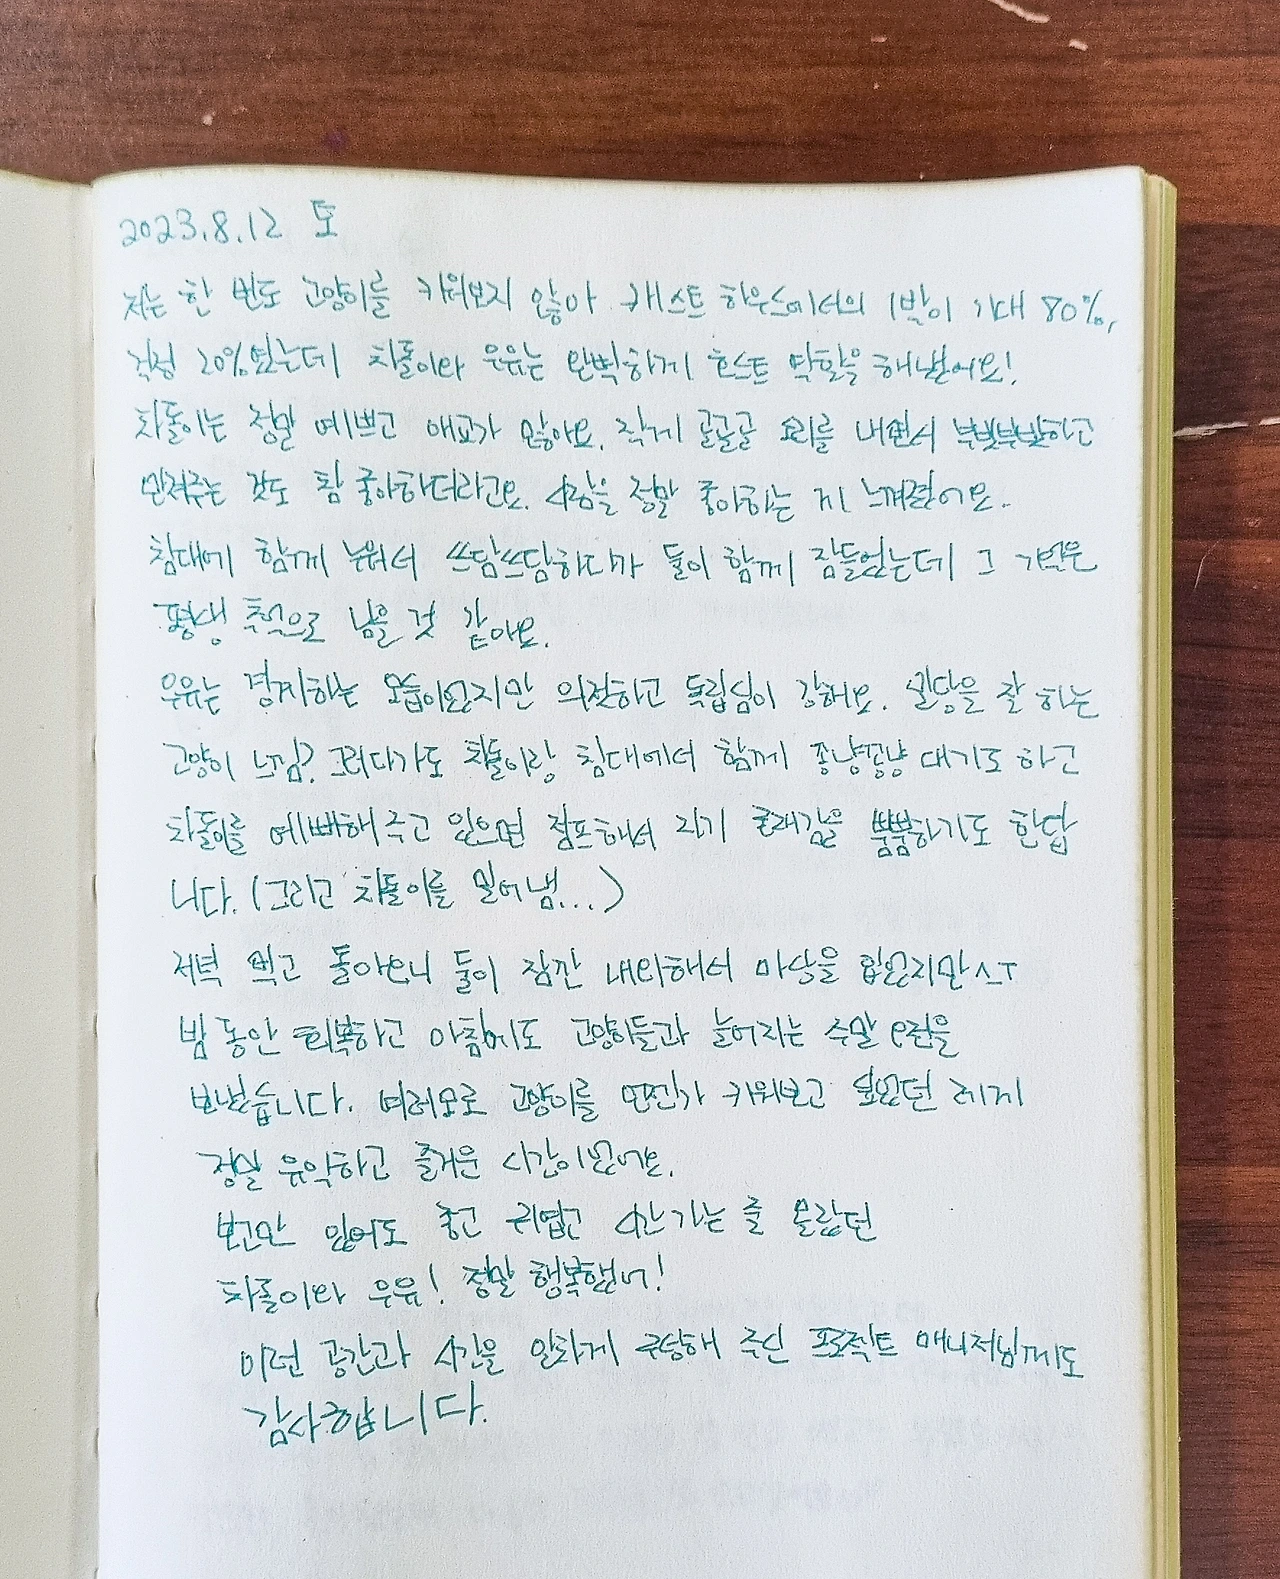 2023.8.12 토
저는 한 번도 고양이를 키워보지 않아 캐스트 하우스에서의 1박이 기대 80%,
걱정 20%였는데 차돌이와 우유는 완벽하게 호스트 역할을 해냈어요!
차돌이는 정말 예쁘고 애교가 많아요. 작게 골골골 소리를 내면서 부빗부빗하고
만져주는 것도 참 좋아하더라고요. 사람을 정말 좋아하는 게 느껴졌어요.
침대에 함께 누워서 쓰담쓰담하다가 둘이 함께 잠들었는데 그 기억은
평생 추억으로 남을 것 같아요.
우유는 경계하는 모습이었지만 의젓하고 독립심이 강해요. 밀당을 잘 하는
고양이 느낌? 그러다가도 차돌이랑 침대에서 함께 꽁냥꽁냥 대기도 하고
차돌이를 예뻐해 주고 있으면 점프해서 자기 존재감을 뿜뿜하기도 한답
니다. (그리고 차돌이를 밀어냄...)
저녁 먹고 돌아오니 둘이 잠깐 내외해서 마상을 입었지만ㅅㅜ
밤 동안 회복하고 아침에도 고양이들과 늘어지는 주말 오전을
보냈습니다. 여러모로 고양이를 언젠가 키워보고 싶었던 제게
정말 유익하고 즐거운 시간이었어요.
보고만 있어도 좋고 귀엽고 시간 가는 줄 몰랐던
차돌이와 우유! 정말 행복했어!
이런 공간과 시간을 알차게 구성해 주신 프로젝트 매니저님께도
감사합니다.